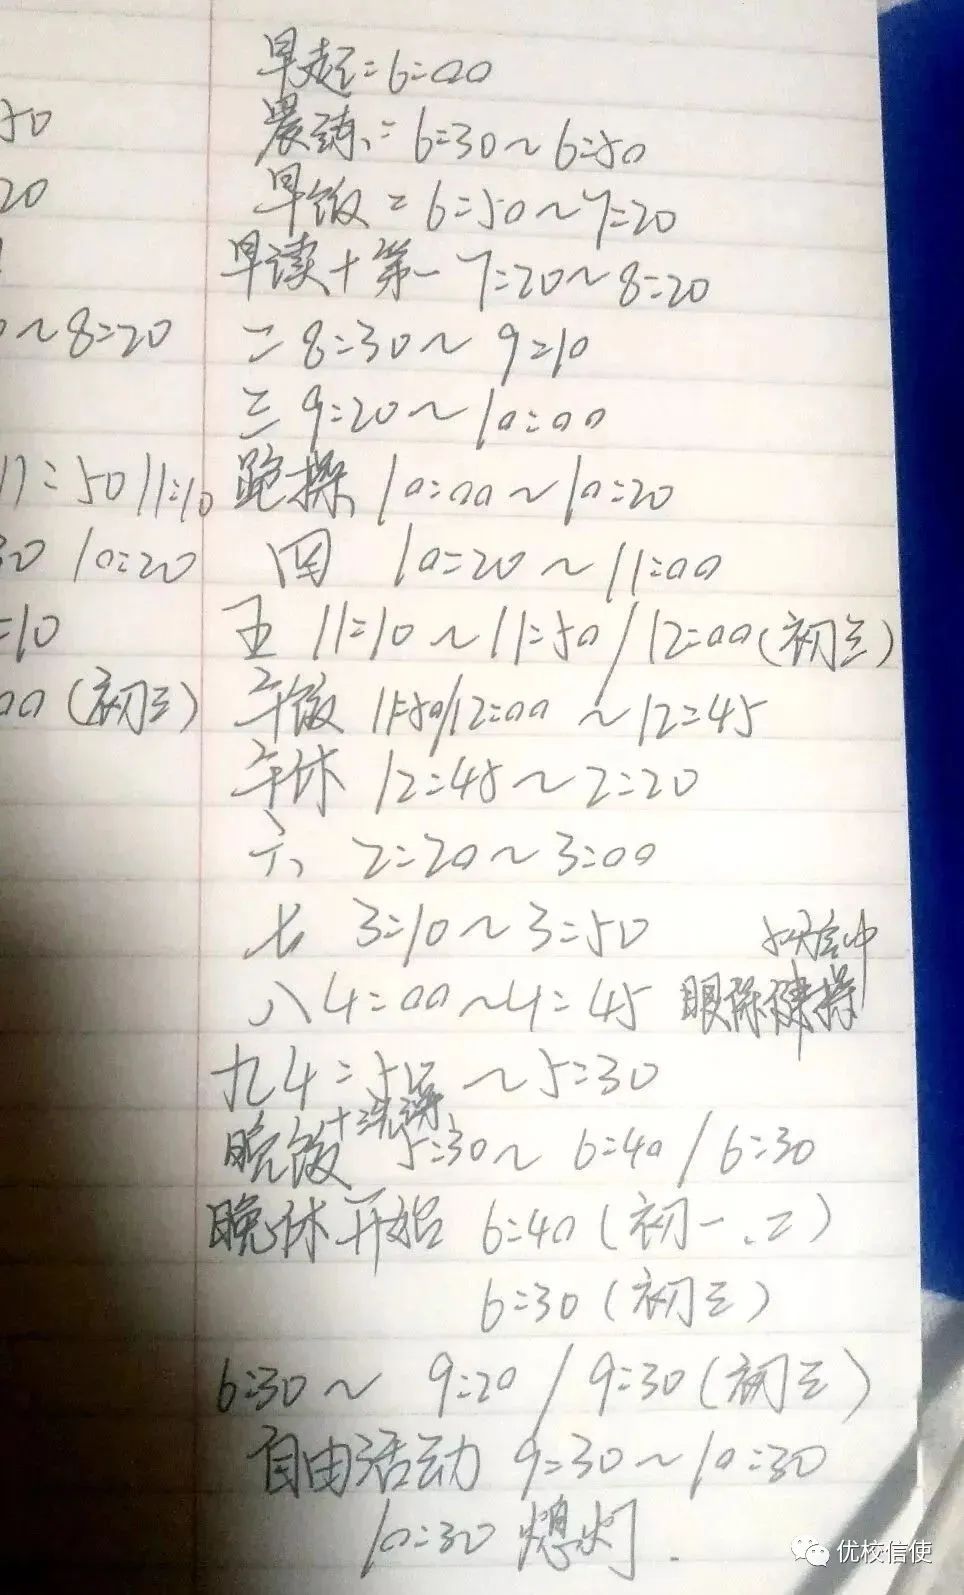 早起:6:00
50
晨练:6:30~6:50
20
早饭:6:50~7:20
早读+第一 7:20~8:20
~8:20
二 8:30~9:10
三 9:20~10:00
11:50 11:10
跑操 10:00~10:20
30 10:20
四 10:20~11:00
:10
五 11:10~11:50/12:00(初三)
00(初三)
午饭 11:50/12:00~12:45
午休 12:45~2:20
六 2:20~3:00
七 3:10~3:50
八 4:00~4:45 眼保健操
九 4:50~5:30
晚饭+洗澡 5:30~6:40/6:30
晚休开始 6:40(初一、二)
6:30(初三)
6:30~9:20/9:30(初三)
自由活动 9:30~10:30
10:30 熄灯.
优校信使